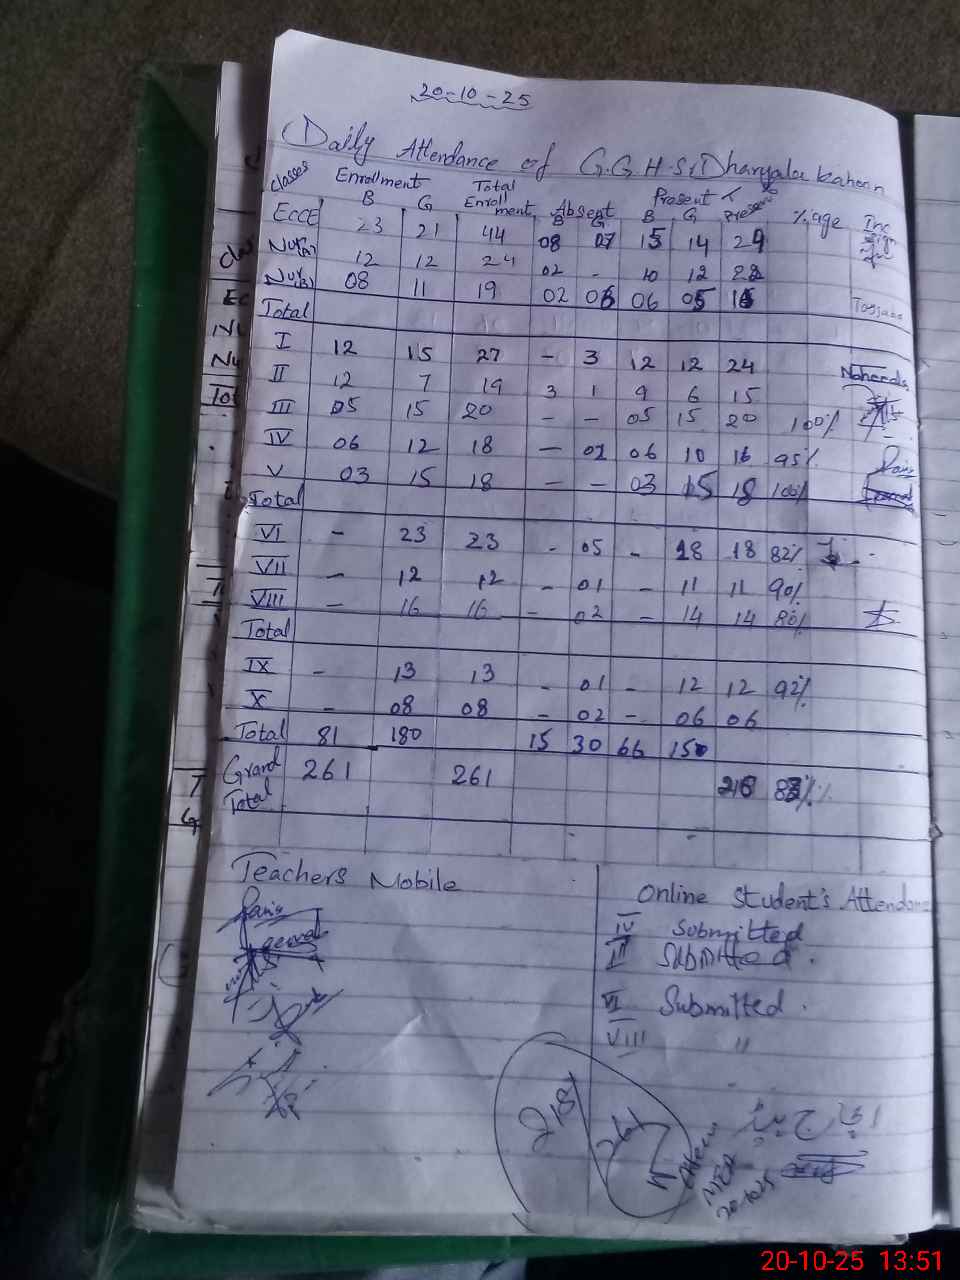 20-10-25
Daily Attendance of G.G.H.S, Dharyala
Classes Enrollment Total Enrollment Absent Present Present %age Inc
B G B G B G
ECCE 23 21 44 08 07 15 14 29
Nur(A) 12 12 24 02 - 10 12 22
Nur(B) 08 11 19 02 06 06 05
Total
I 12 15 27 - 3 12 12 24
II 12 7 19 3 1 9 6 15
III 05 15 20 - - 05 15 20 100%
IV 06 12 18 - 02 06 10 16 95%
V 03 15 18 - - 03 15 18 100%
Total
VI - 23 23 - 05 - 18 18 82%
VII - 12 12 - 01 - 11 11 90%
VIII - 16 16 - 02 - 14 14 80%
Total
IX - 13 13 - 01 - 12 12 92%
X - 08 08 - 02 - 06 06
Total 81 180 15 30 66 150
Grand Total 261 261 216 83%
Teachers Mobile
Online Student's Attendance
IV Submitted
III Submitted.
VI Submitted.
VIII "
218/261
MEA
20-10-25
20-10-25 13:51